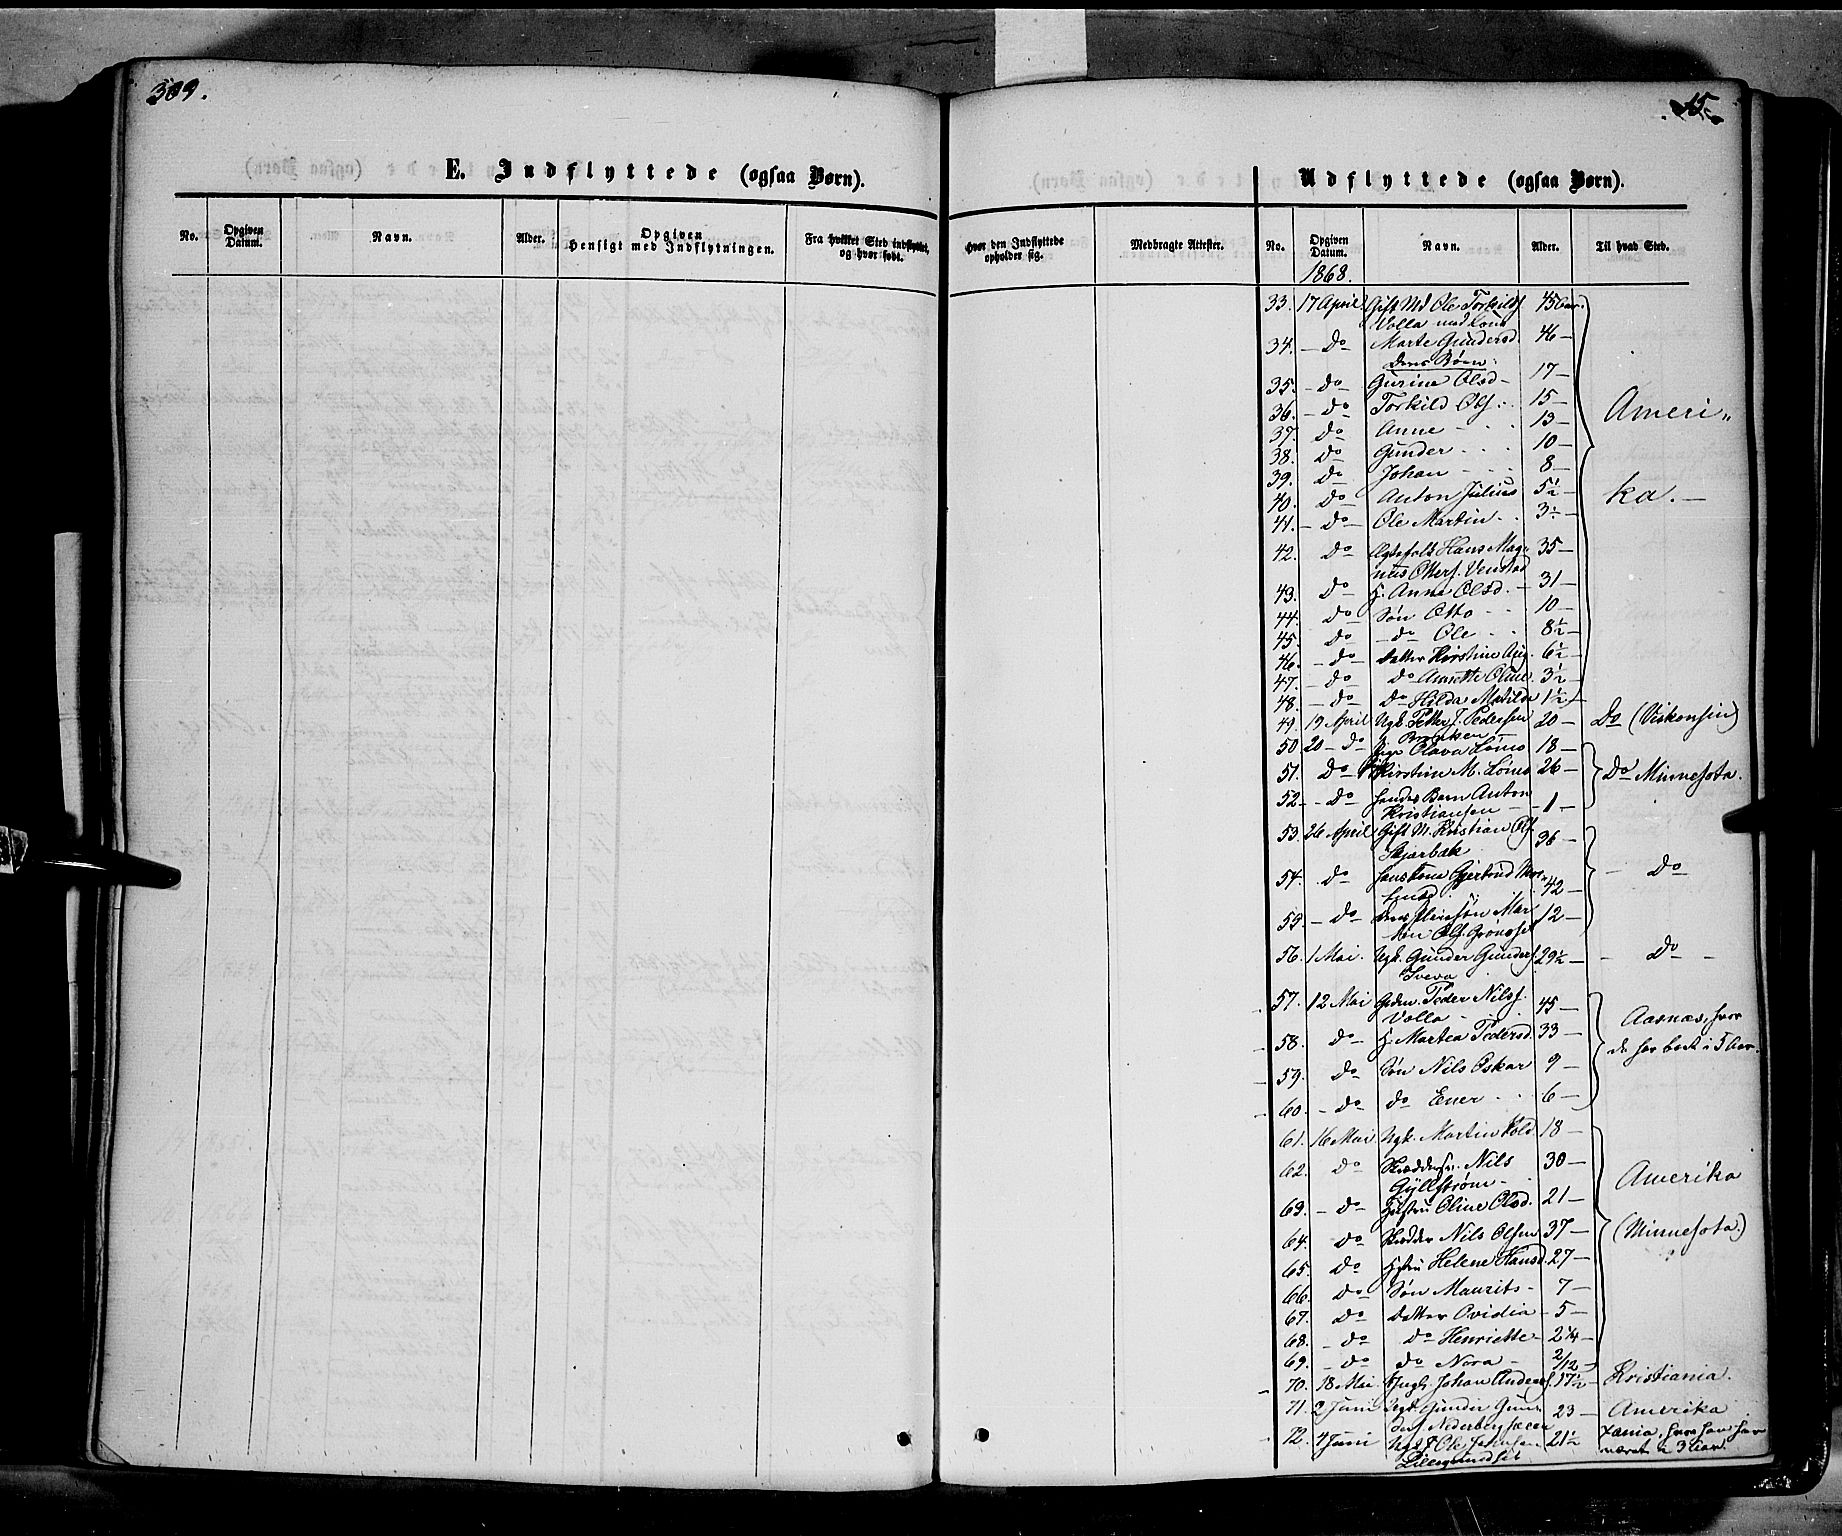 309.
15.
E. Indflyttede (ogsaa Børn).
No.
Opgiven Datum.
Navn.
Alder.
Opgiven Hensigt med Indflytningen.
Fra hvilket Sted indflyttet, og hvor født.
Hvor den Indflyttede opholder sig.
Medbragte Attester.
Udflyttede (ogsaa Børn).
No.
Opgiven Datum.
Navn.
Alder.
Til hvad Sted.
1868.
33. 17 April. Gift Md Ole Torkilds. 45 Aar.
Volla med Kone
34. - Do Marte Gundersd. 46 -
Deres Børn:
35. - do Gurine Olsd - 17 -
36. - do Torkild Ols. 15 -
37. do Anne - 13 -
38. do Gunder 10 -
39. do Johan 8 -
40. do Anton Julius 5½ -
41. - do Ole Martin 3½ -
Ameri„
ka. -
42. do Ægtefolk Hans Mag- 35 -
nus Otters. Venstad
43. do H. Anne Olsd. 31 -
44. do Søn Otto 10 -
45. do - do Ole 8½ -
46. - do Datter Kirstine Aug. 6½ -
47. - do do Annette Oline 3½ -
48. - do do Hilda Matilda 1½ -
49. 19 April Ugk. Petter J. Pedersen 20 - Do (Viskonsin)
50. 20 - do Pige Olava Lømo 18 -
51. do Kirstine M. Lømo 26 - Do Minnesota.
52. - do hendes Barn Anton
Kristiansen - 1 -
53. 26 April Gift M. Kristian Ols. 36 -
Skjærbæk
54. do hans Kone Gjertrud 42 - - Do
55. - do Mar 12 -
ten Ols. Grønæset
56. 1 Mai. Ugk. Gunder Gunders. 29½ - - Do -
Sveva
57. 12 Mai Peder Nils. 45 -
Volla -
58. do H. Martea Pedersd. 33 -
59. do Søn Nils Oskar 9 -
60. - do do Ener 6 -
Aasnæs, hvor
de har boet i 5 Aar.
61. 16 Mai Ugk. Martin Kold. 18 -
62. do Nils 30 -
Gyllstrøm -
63. - do Hustru Oline Olsd. 21 -
64. do Skrædder Nils Olsen 37 -
65. do Hstru Helene Hansd. 27 -
66. do Søn Maurits - 7 -
67. do Datter Ovidia - 5 -
68. - do do Henriette - 2¼ -
69. - do do Nora - 2/12 -
Amerika
(Minnesota.)
70. 18 Mai Ungk. Johan Anders. 17½ - Kristiania.
71. 2 Juni Ugk. Gunder Gun- 23 - Amerika
ders. Nederberg
72. 4 Juni Ungk. Ole Johnsen 21½ Xania, hvor han har
Lillegundset været i 3 Aar.